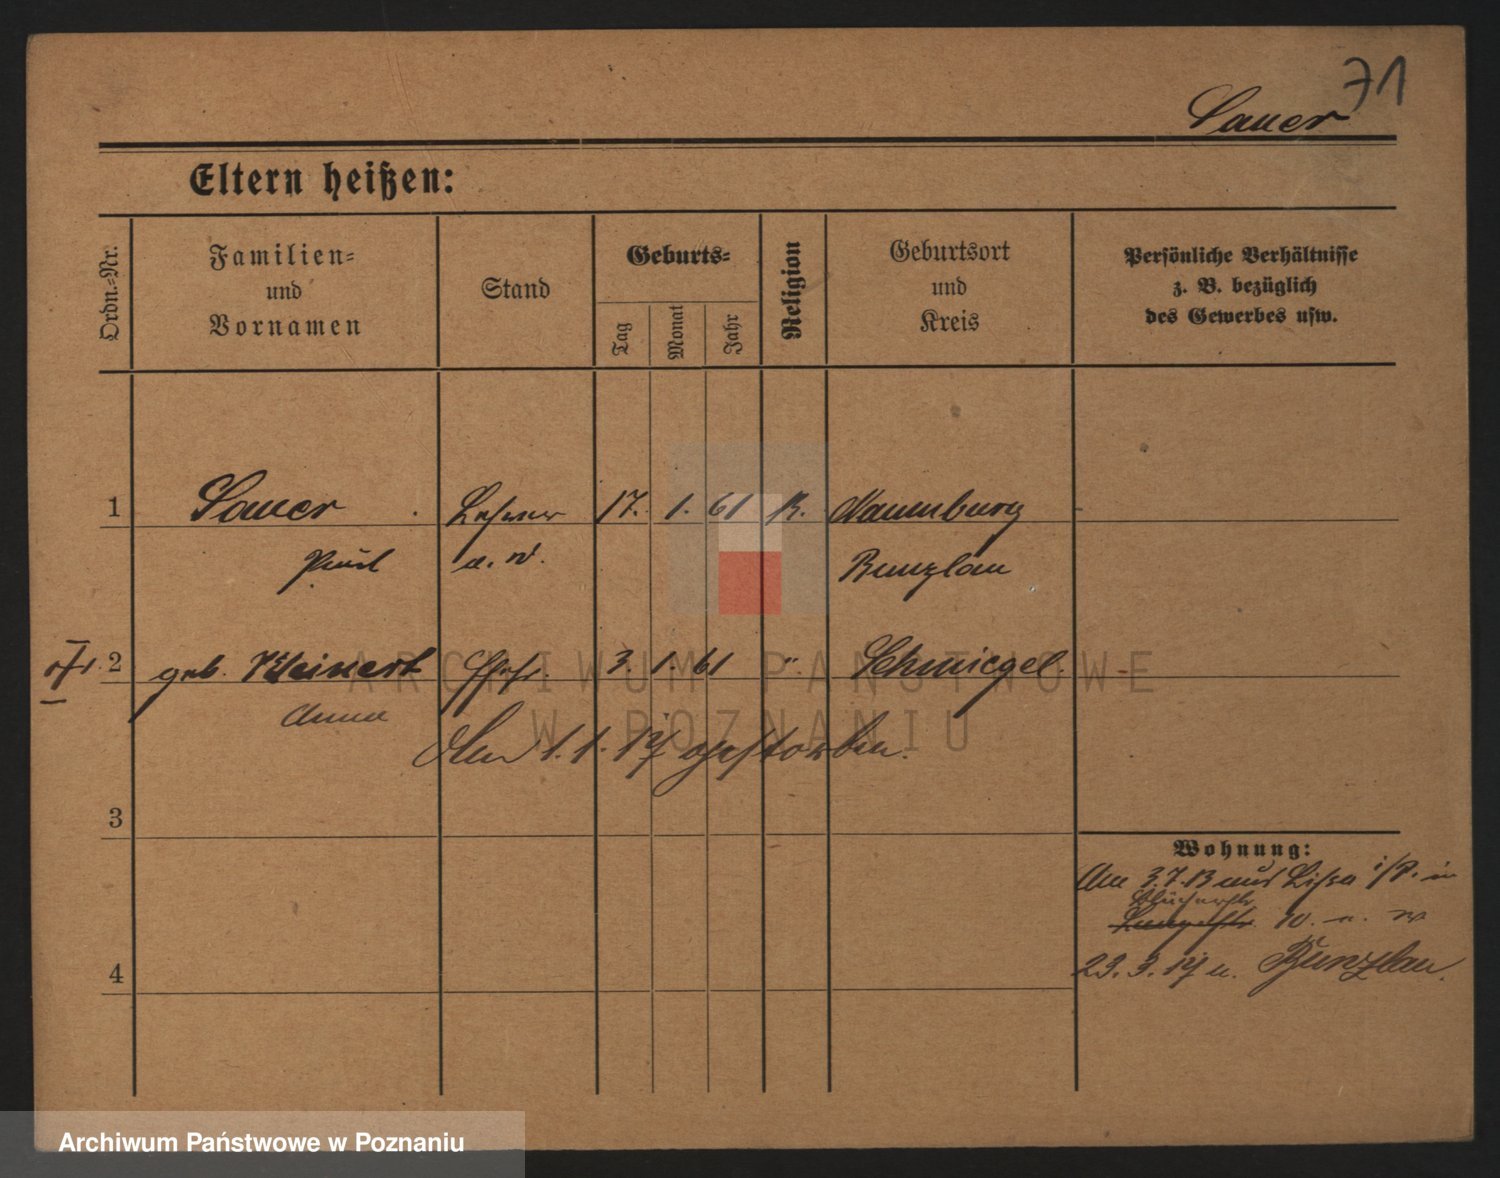 71
Sauer
Eltern heißen:
Ordn.-Nr.
Familien-
und
Vornamen
Stand
Geburts-
Tag
Monat
Jahr
Religion
Geburtsort
und
Kreis
Persönliche Verhältnisse
z. B. bezüglich
des Gewerbes usw.
1 Sauer Lehrer 17. 1. 61 K. Naumburg
Paul a. D. Bunzlau
2 geb. Kleinert Ehefr. 3. 1. 61 ". Schmiegel
Anna
Am 1.1.17 gestorben.
3
Wohnung:
Am 3.7.13 aus Lissa i/P. in
Blücherstr
10.
23.3.17 n. Bunzlau.
4
ARCHIWUM PAŃSTWOWE
W POZNANIU
Archiwum Państwowe w Poznaniu